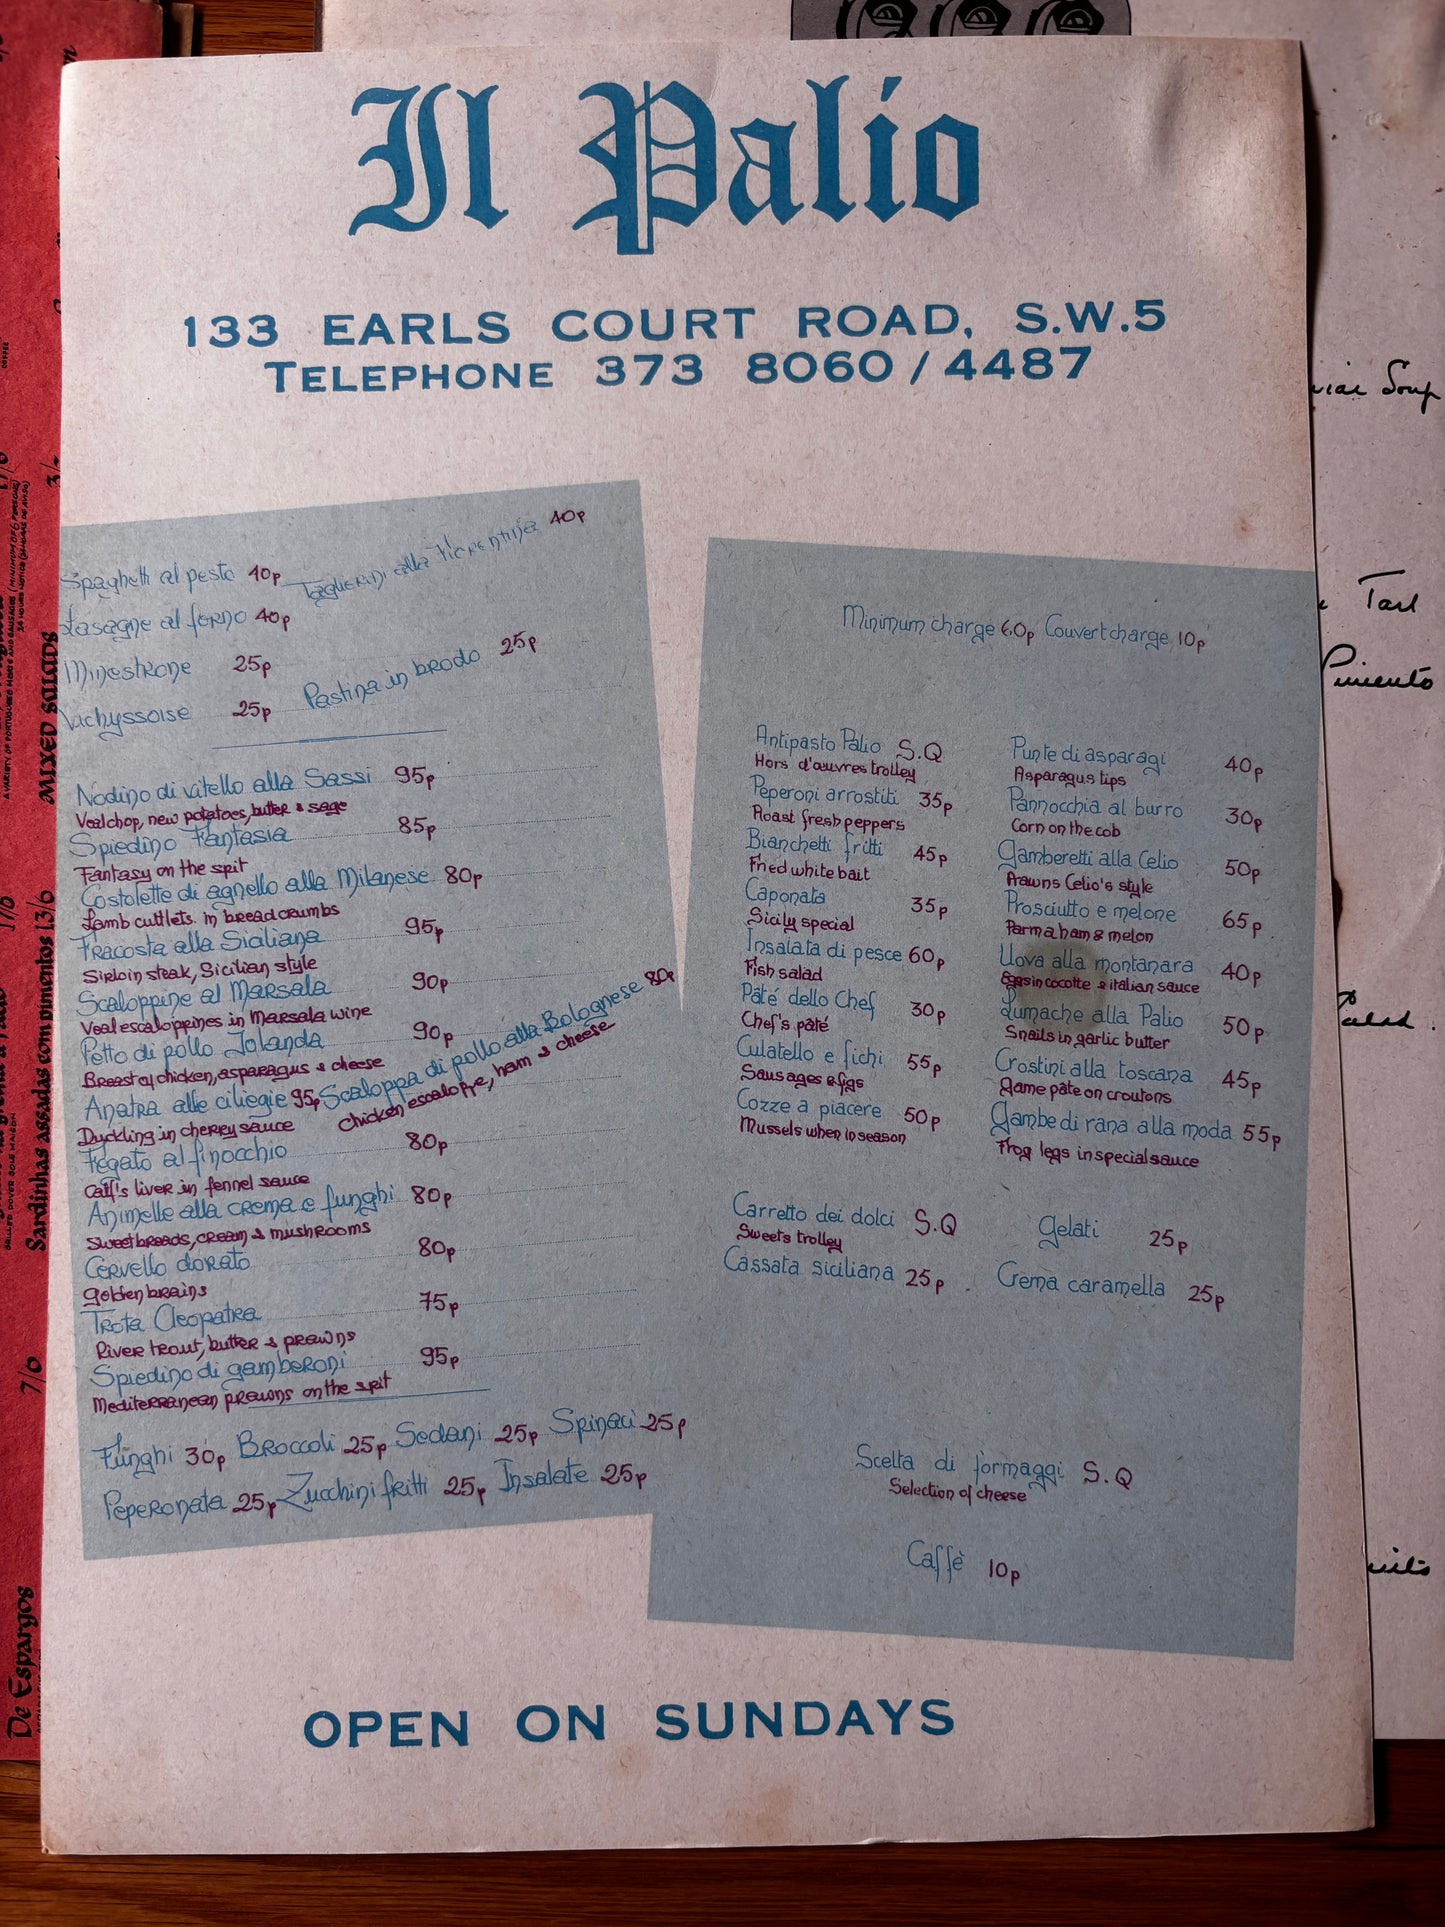 Il Palio
133 EARLS COURT ROAD, S.W.5
TELEPHONE 373 8060/4487
Spaghetti al pesto 40p
Taglierini alla Fiorentina 40p
Lasagne al forno 40p
Minestrone 25p
Pastina in brodo 25p
Vichyssoise 25p
Nodino di vitello alla Sassi 95p
Veal chop, new potatoes, butter & sage
Spiedino Fantasia 85p
Fantasy on the spit
Costolette di agnello alla Milanese 80p
Lamb cuttlets in breadcrumbs
Fracosta alla Siciliana 95p
Sirloin steak, Sicilian style
Scaloppine al Marsala 90p
Veal escaloppines in Marsala wine
Petto di pollo Jolanda 90p
Breast of chicken, asparagus & cheese
Anatra alle ciliegie 95p
Duckling in cherry sauce
Scaloppa di pollo alla Bolognese 80p
Chicken escaloppe, ham & cheese
Fegato al finocchio 80p
Calf's liver in fennel sauce
Animelle alla crema e funghi 80p
Sweetbreads, cream & mushrooms
Cervello dorato 80p
Golden brains
Trota Cleopatra 75p
River trout, butter & prawns
Spiedino di gamberoni 95p
Mediterranean prawns on the spit
Funghi 30p Broccoli 25p Sedani 25p Spinaci 25p
Peperonata 25p Zucchini fritti 25p Insalate 25p
Minimum charge 60p Couvert charge 10p
Antipasto Palio S.Q
Hors d'œuvres trolley
Peperoni arrostiti 35p
Roast fresh peppers
Bianchetti fritti 45p
Fried white bait
Caponata 35p
Sicily special
Insalata di pesce 60p
Fish salad
Pâté dello Chef 30p
Chef's pâté
Culatello e fichi 55p
Sausages & figs
Cozze a piacere 50p
Mussels when in season
Punte di asparagi 40p
Asparagus tips
Pannocchia al burro 30p
Corn on the cob
Gamberetti alla Celio 50p
Prawns Celio's style
Prosciutto e melone 65p
Parma ham & melon
Uova alla montanara 40p
Eggs in cocotte & italian sauce
Lumache alla Palio 50p
Snails in garlic butter
Crostini alla toscana 45p
Game pâte on croutons
Gambe di rana alla moda 55p
Frog legs in special sauce
Carretto dei dolci S.Q
Sweets trolley
Gelati 25p
Cassata siciliana 25p
Crema caramella 25p
Scelta di formaggi S.Q
Selection of cheese
Caffè 10p
OPEN ON SUNDAYS
COFFEE
3/-
MIXED SALADS
17/6
Sardinhas assadas com pimentos 13/6
GRILLED DOVER SOLE MAISON
7/6
De Espargos
Soup
Tart
Pimiento